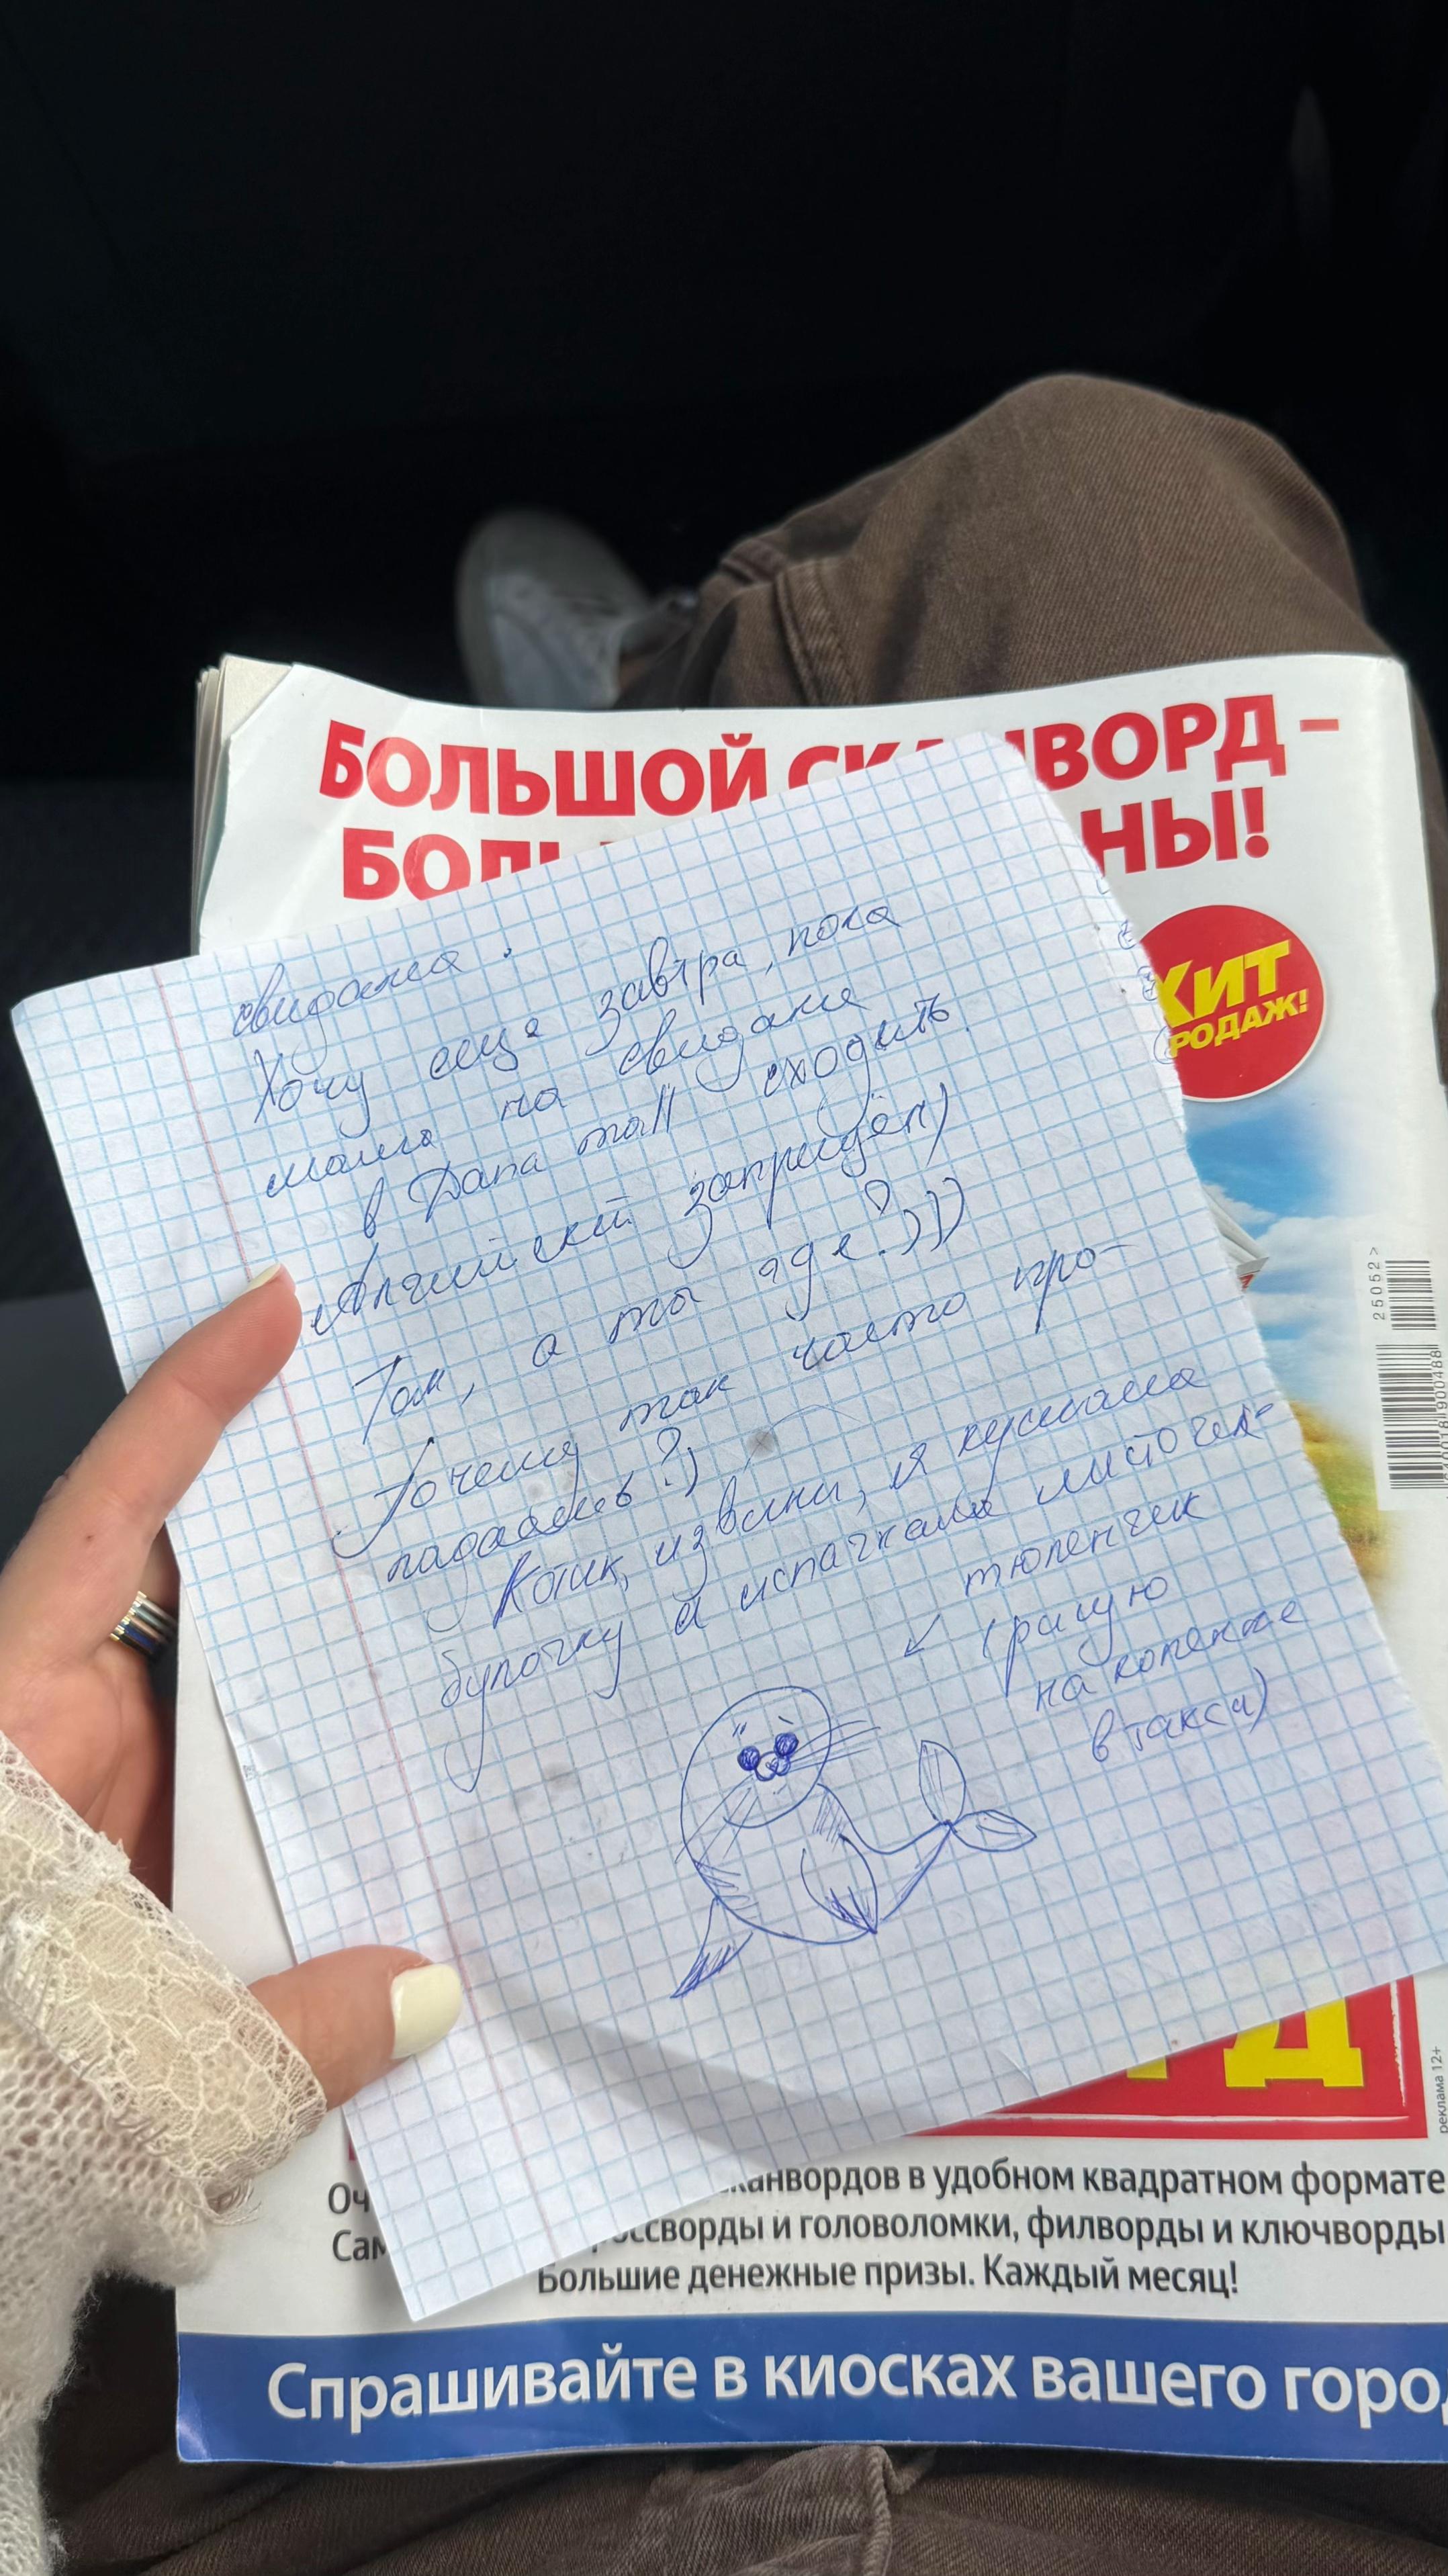 БОЛЬШОЙ СКАНВОРД –
БОЛЬ НЫ!
ХИТ
РОДАЖ!
свидания.
Хочу ещё завтра, пока
на свидание
в Дана mall сходить.
Английский запрещён)
Том, а ты где?)))
Почему так часто про-
падаешь?)
Котик, извини, я кушала
булочку и испачкала листочек
тюленчик
(рисую
на коленке
в такси)
25052>
Д
реклама 12+
Оч канвордов в удобном квадратном формате
Сам россворды и головоломки, филворды и ключворды
Большие денежные призы. Каждый месяц!
Спрашивайте в киосках вашего горо